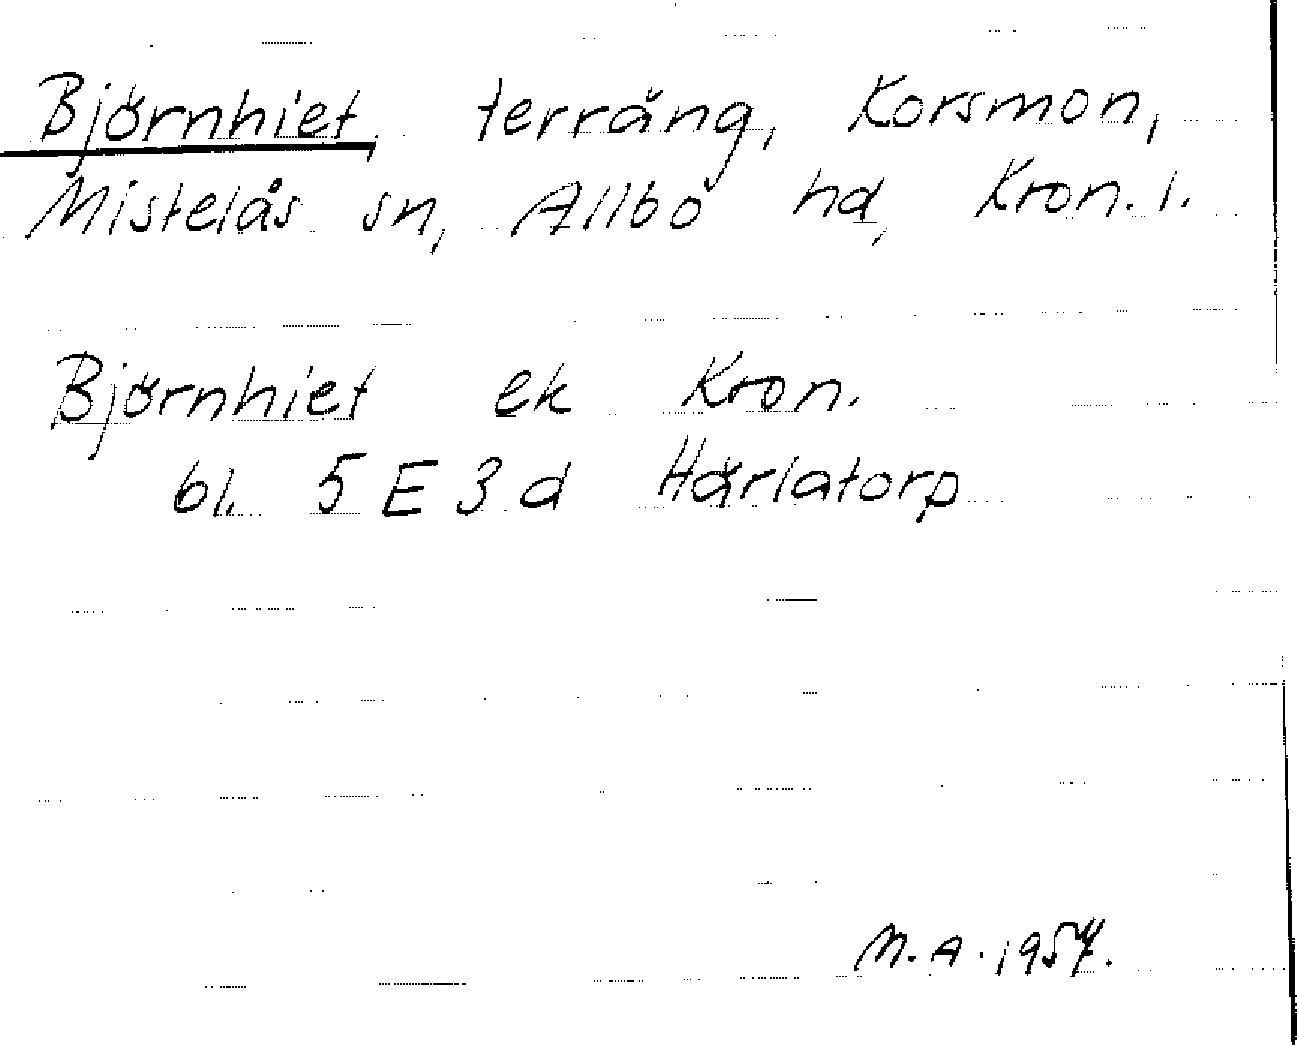 Björnhiet, terräng, Korsmon,
Mistelås sn, Allbo hd, Kron. l.
Björnhiet ek Kron.
bl. 5 E 3 d Härlatorp
M. A. 1957.